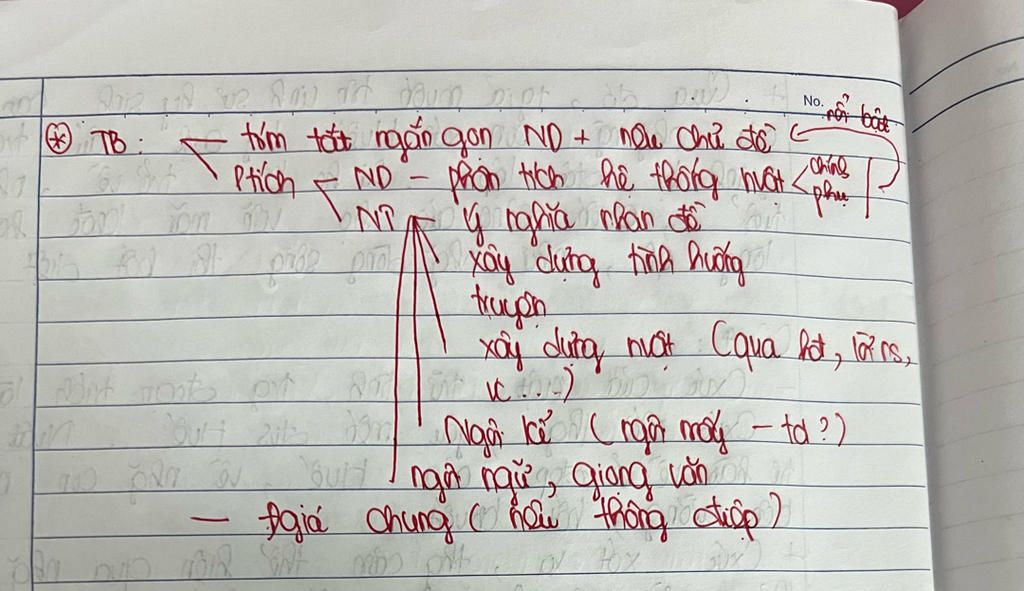 No.
nổi bật
* TB: tóm tắt ngắn gọn ND + nêu chủ đề
Ptích ND - phân tích hệ thống nvật chính
phụ
NT ý nghĩa nhan đề
xây dựng tình huống
truyện
xây dựng nvật (qua hđ, lời ns,
vc...)
Ngôi kể (ngôi mấy - td?)
ngôn ngữ, giọng văn
- Đgiá chung (nêu thông điệp)